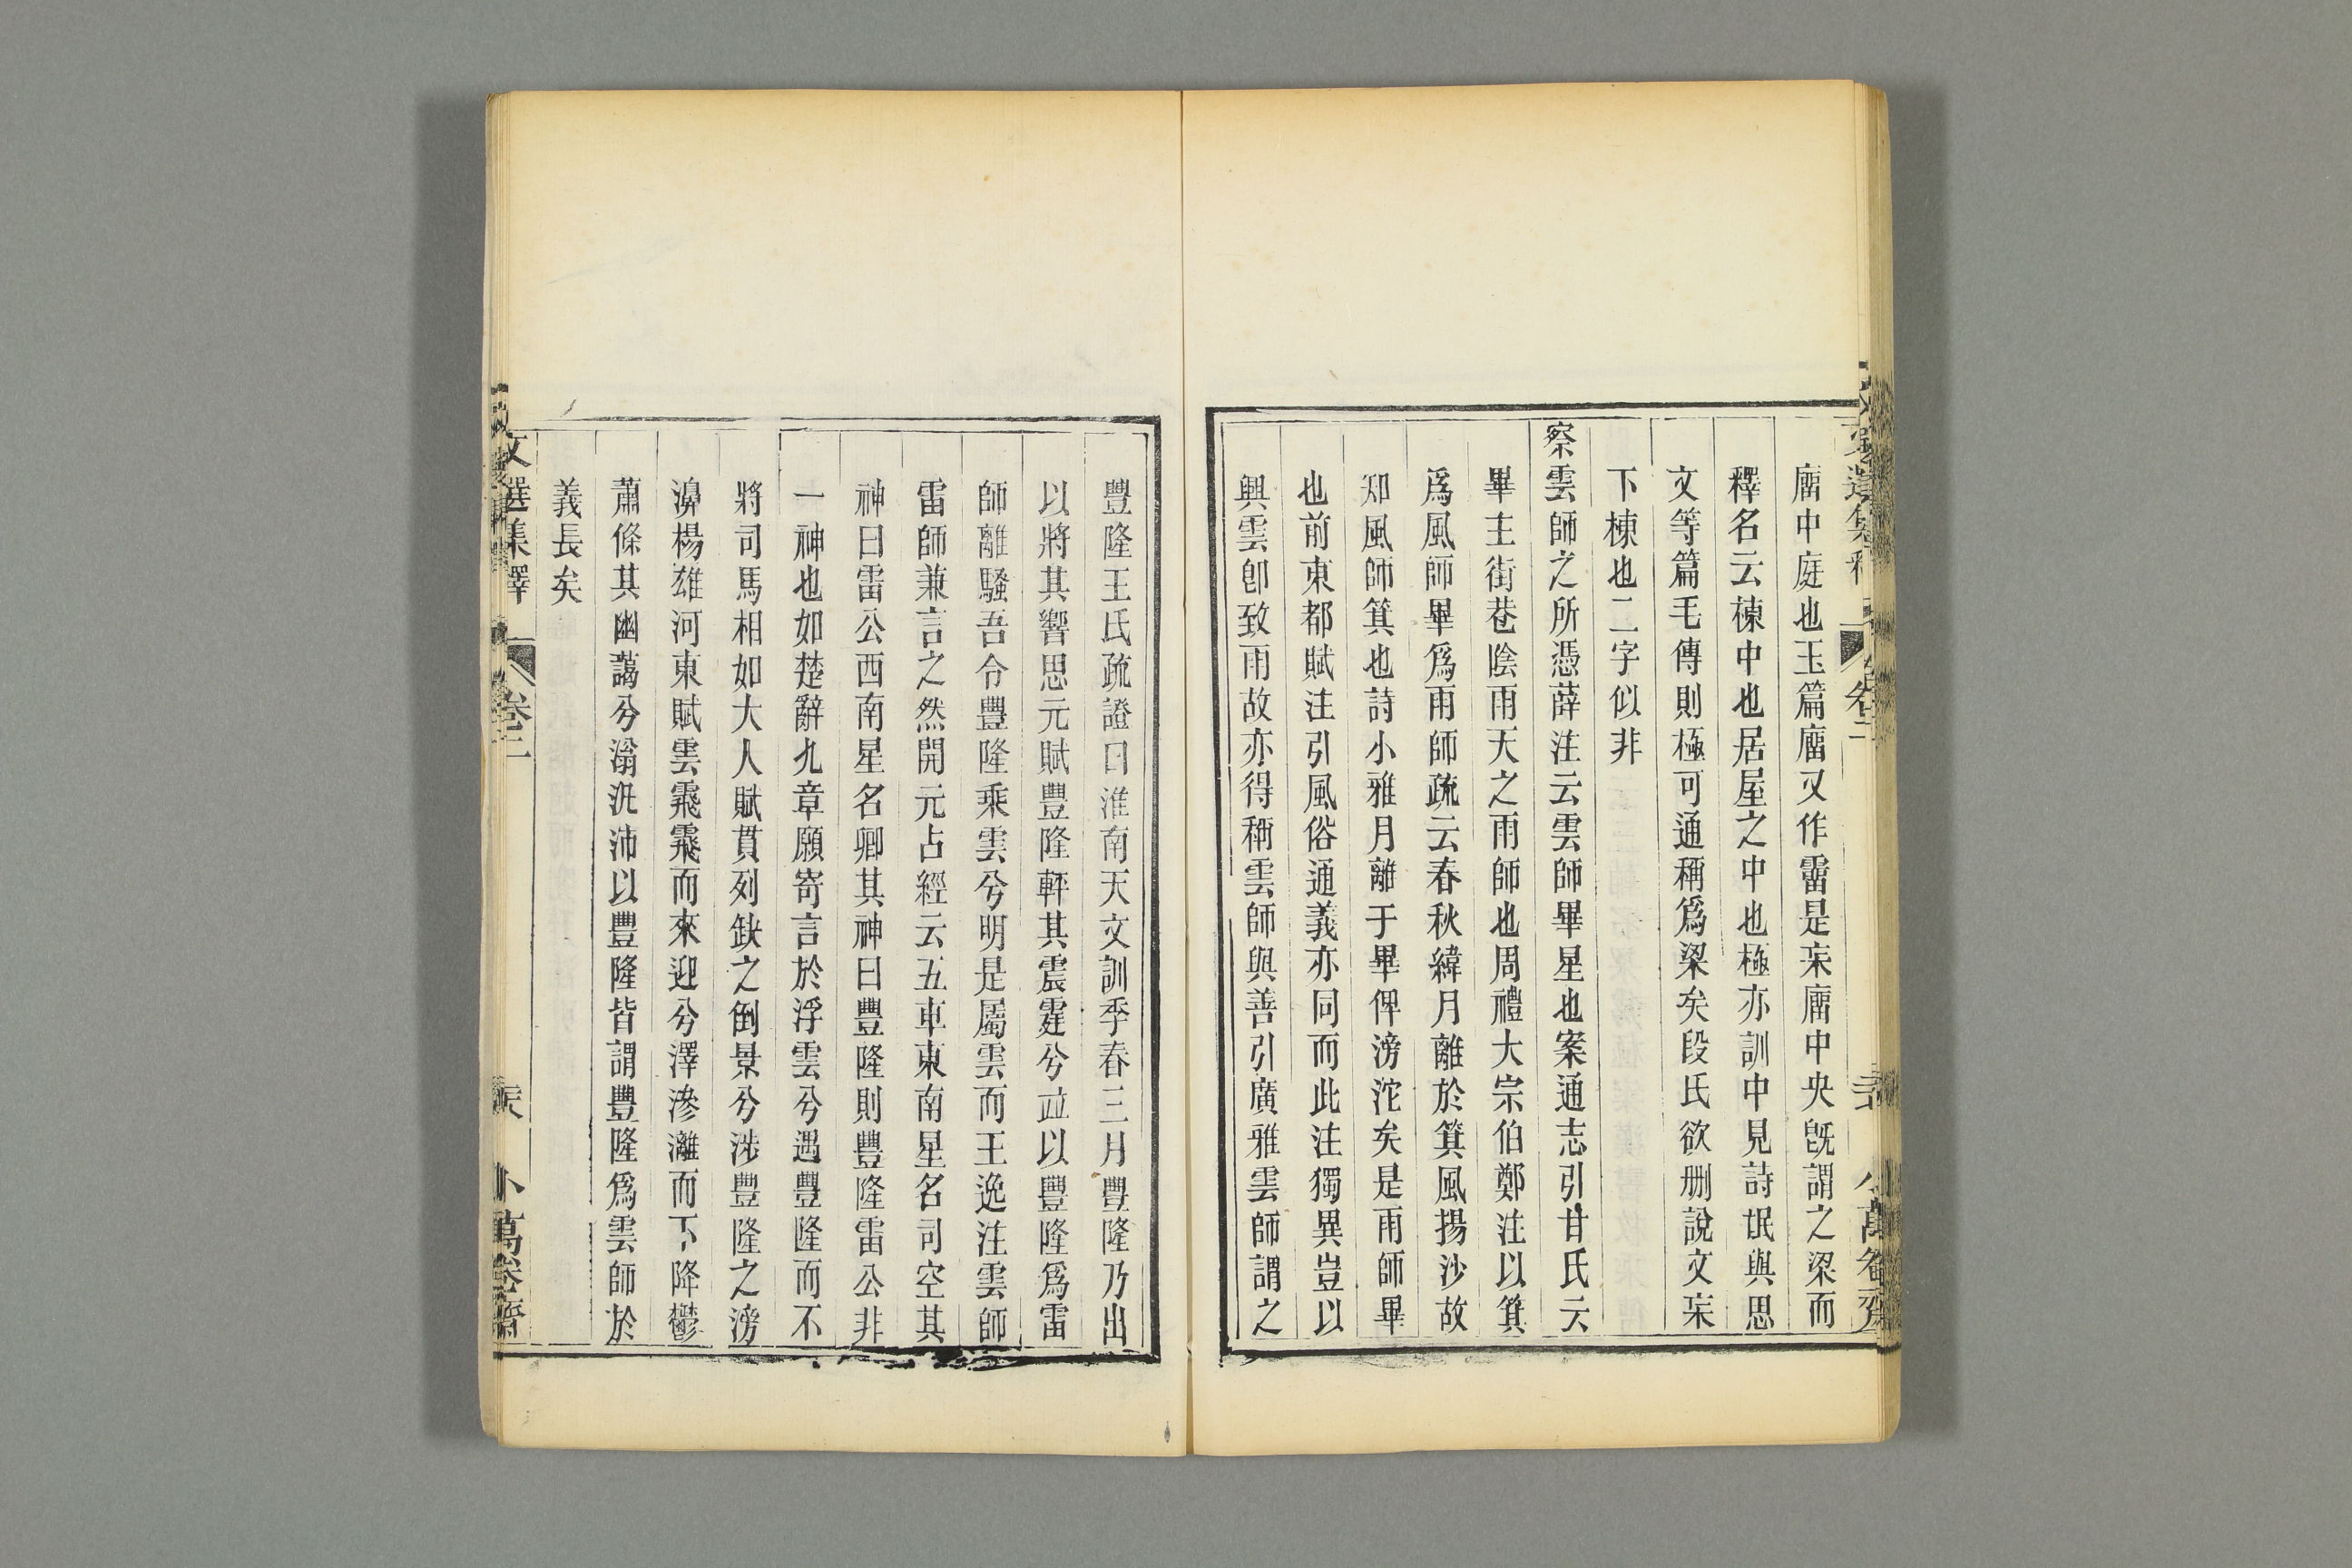 廇中庭也玉篇廇又作霤是宋廇中央旣謂之梁而
釋名云棟中也居屋之中也極亦訓中見詩氓與思
文等篇毛傳則極可通稱爲梁矣段氏欲刪說文宋
下棟也二字似非
察雲師之所憑薛注云雲師畢星也案通志引甘氏云
畢主街巷陰雨天之雨師也周禮大宗伯鄭注以箕
爲風師畢爲雨師疏云春秋緯月離於箕風揚沙故
知風師箕也詩小雅月離于畢俾滂沱矣是雨師畢
也前東都賦注引風俗通義亦同而此注獨異豈以
興雲卽致雨故亦得稱雲師與善引廣雅雲師謂之
豐隆王氏疏證曰淮南天文訓季春三月豐隆乃出
以將其響思元賦豐隆軯其震霆兮竝以豐隆爲雷
師離騷吾令豐隆乘雲兮明是屬雲而王逸注雲師
雷師兼言之然開元占經云五車東南星名司空其
神曰雷公西南星名卿其神曰豐隆則豐隆雷公非
一神也如楚辭九章願寄言於浮雲兮遇豐隆而不
將司馬相如大人賦貫列缺之倒景兮涉豐隆之滂
濞楊雄河東賦雲霏霏而來迎兮澤滲灕而下降鬱
蕭條其幽藹兮滃汎沛以豐隆皆謂豐隆爲雲師於
義長矣
文選集釋 卷二 小萬卷齋